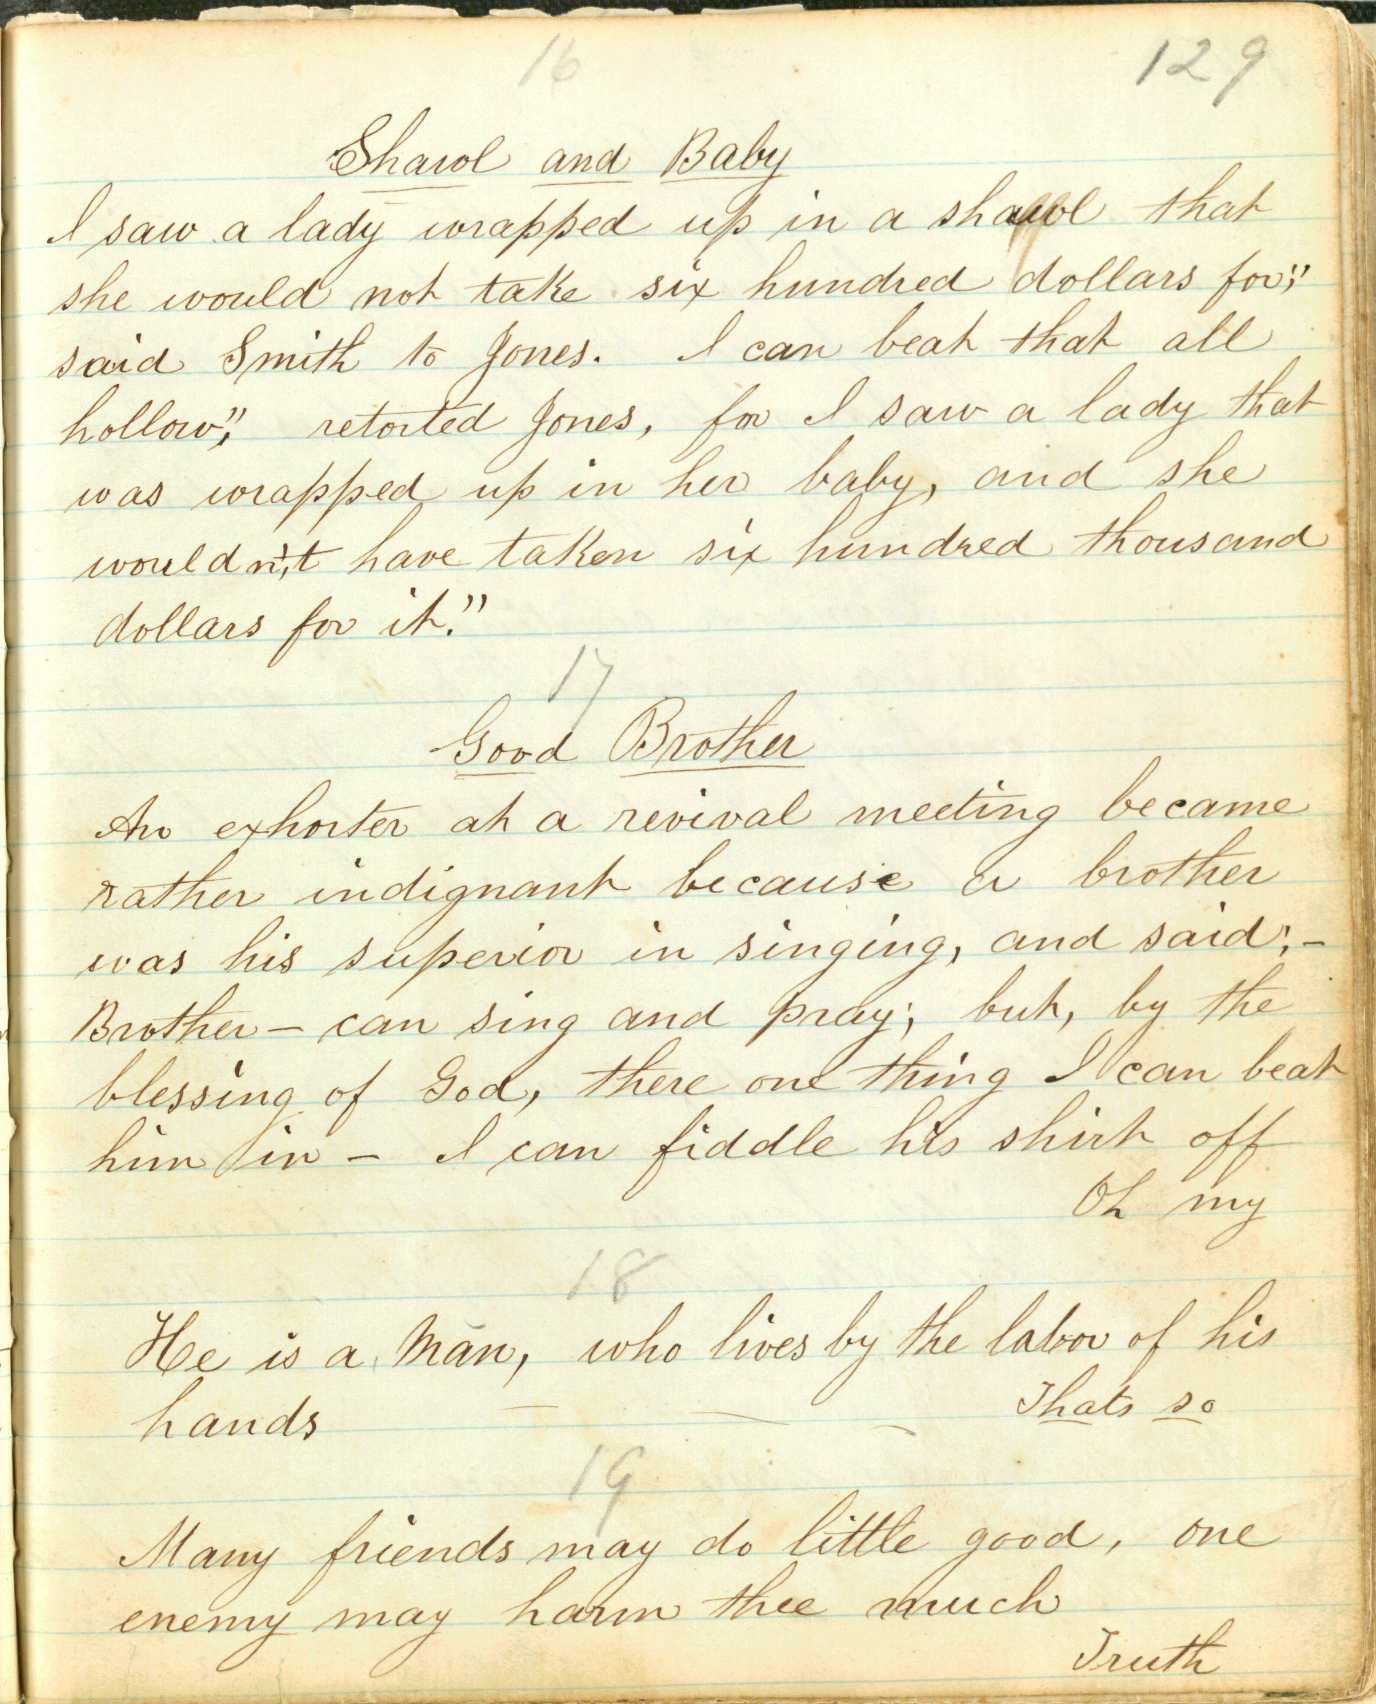 16
129
Shawl and Baby
I saw a lady wrapped up in a shawl that
she would not take six hundred dollars for,"
said Smith to Jones. I can beat that all
hollow," retorted Jones, for I saw a lady that
was wrapped up in her baby, and she
wouldn't have taken six hundred thousand
dollars for it."
17
Good Brother
An exhorter at a revival meeting became
rather indignant because a brother
was his superior in singing, and said;-
Brother - can sing and pray; but, by the
blessing of God, there one thing I can beat
him in - I can fiddle his shirt off
Oh my
18
He is a Man, who lives by the labor of his
hands - - - Thats so
19
Many friends may do little good, one
enemy may harm thee much
Truth